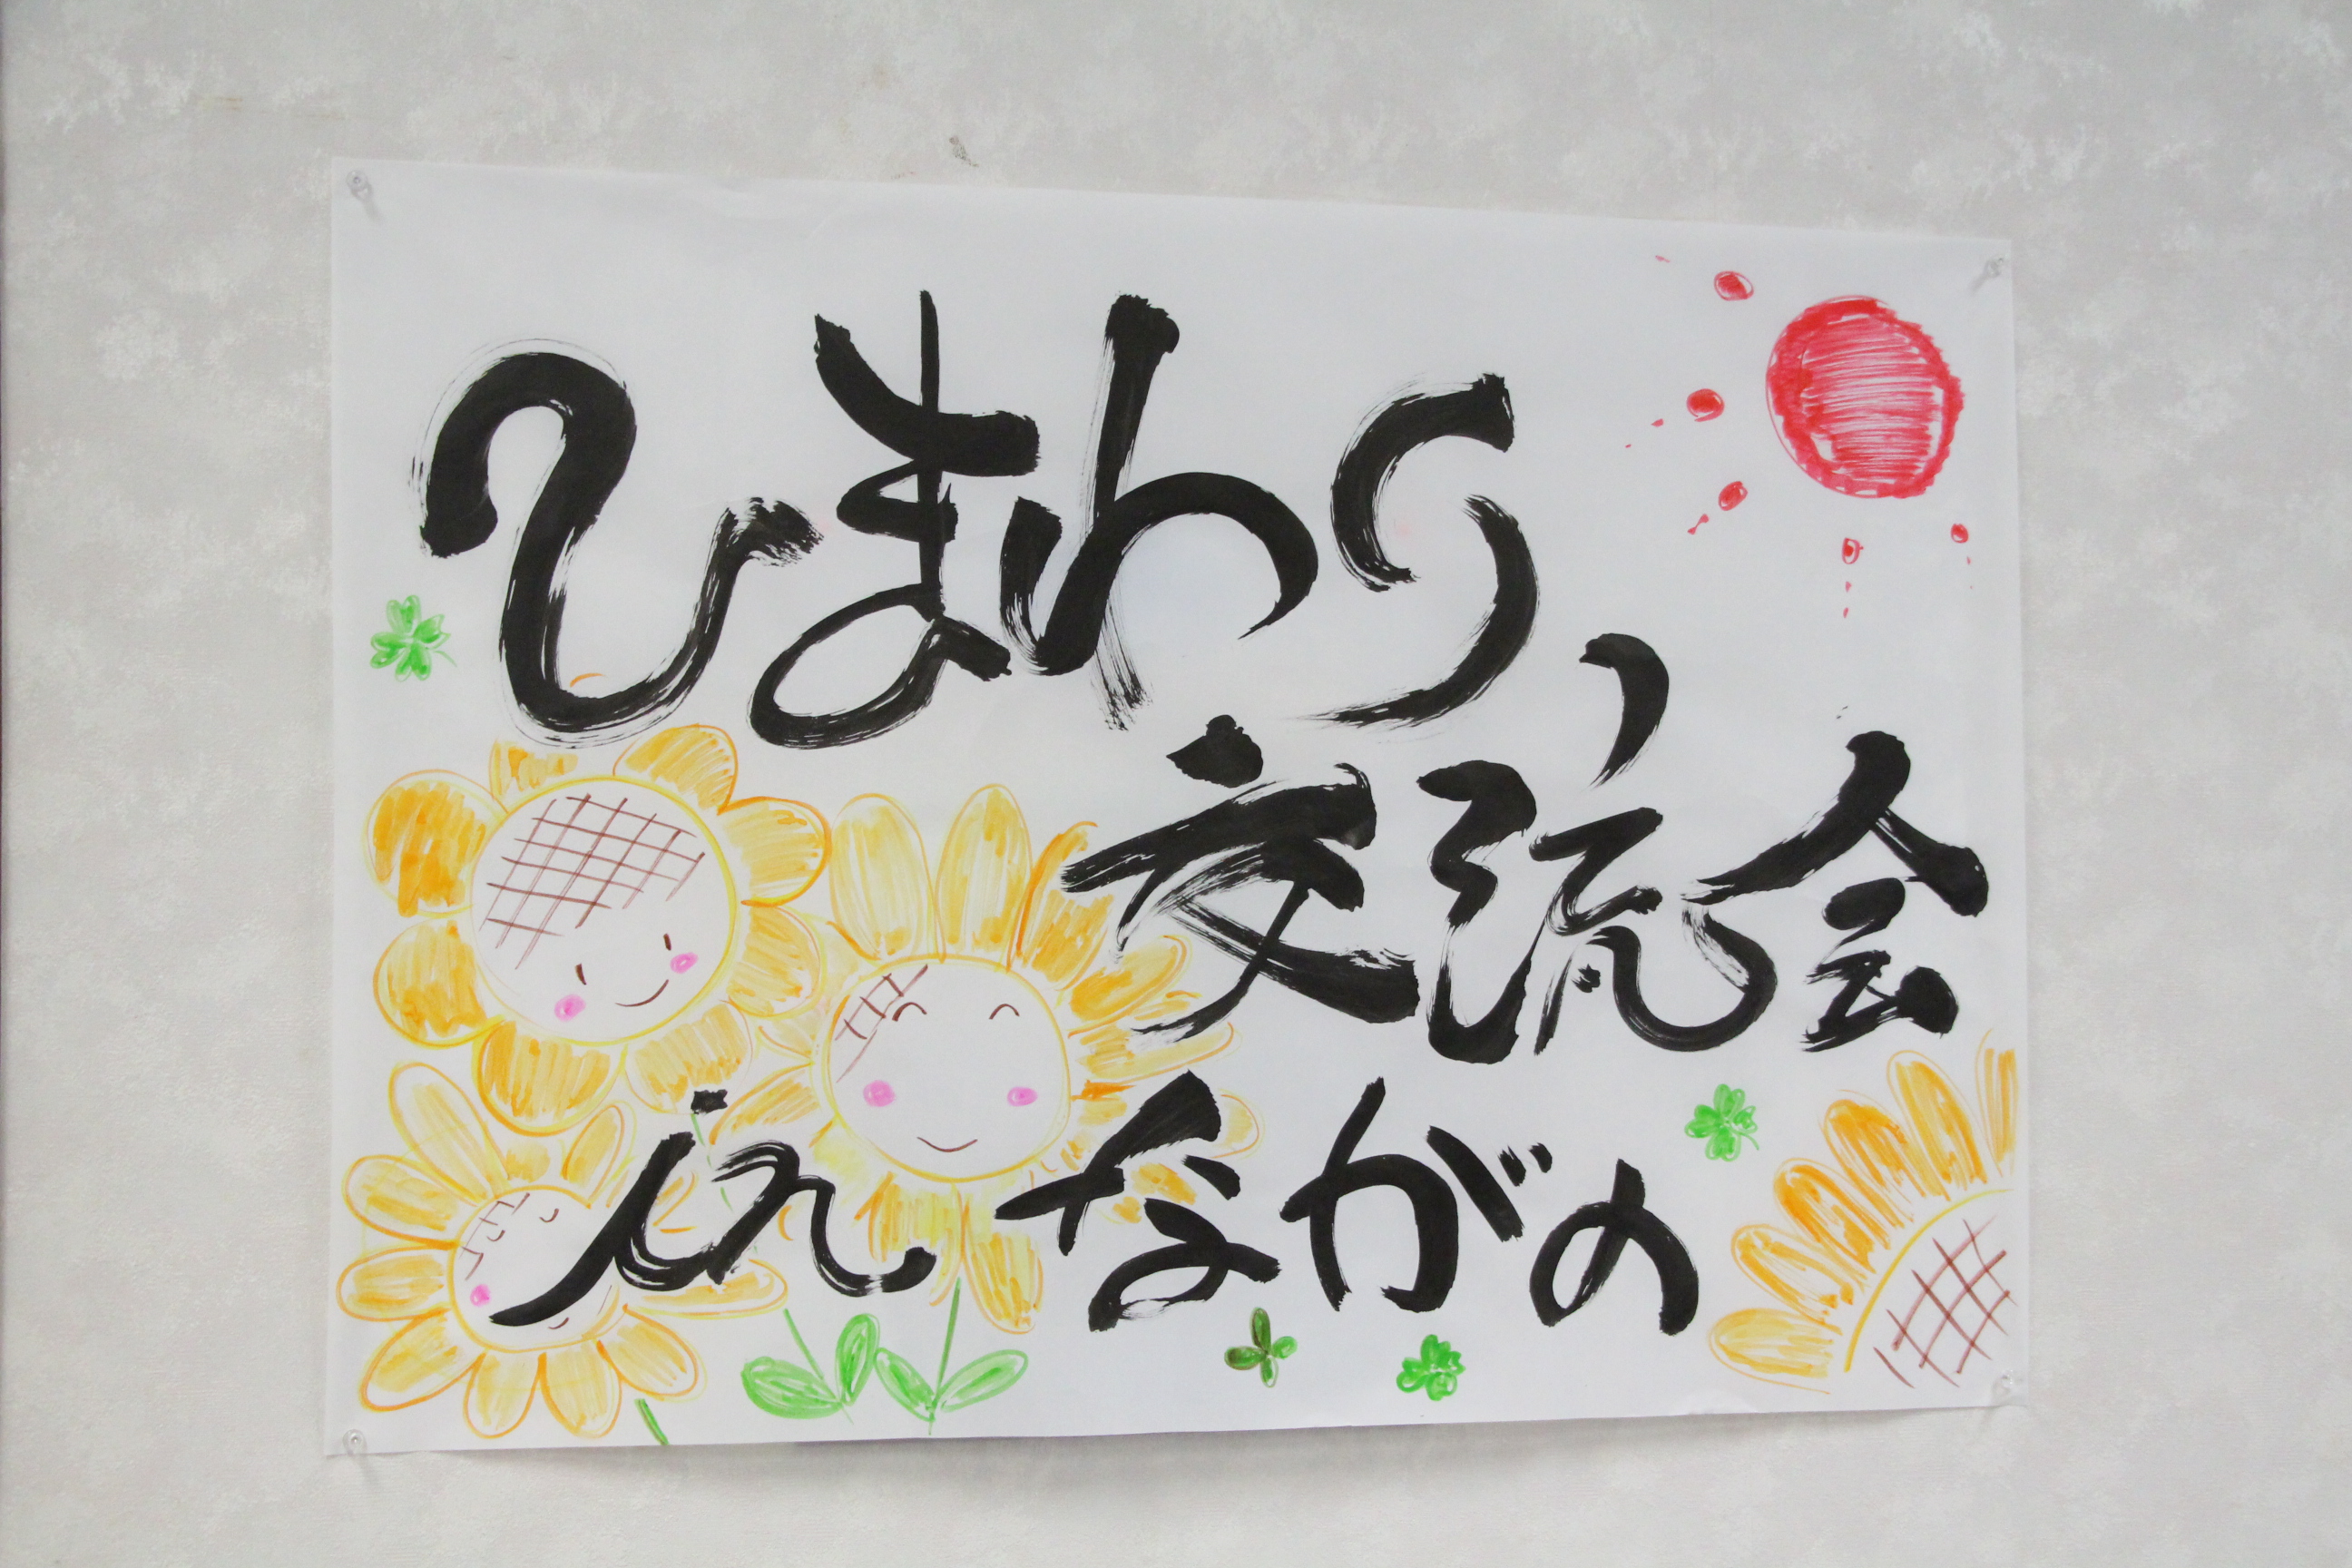 ひまわり
交流会
in ながの